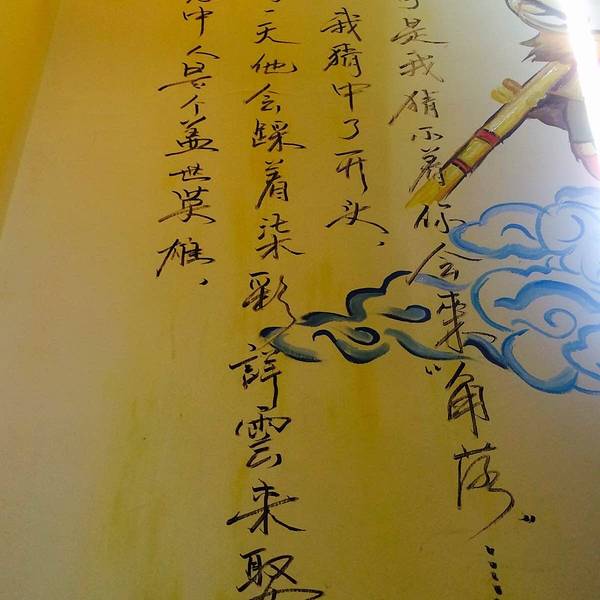 中人是个盖世英雄，
一天他会踩着柒彩詳雲来娶
我猜中了开头，
可是我猜不着你会来“角落”……